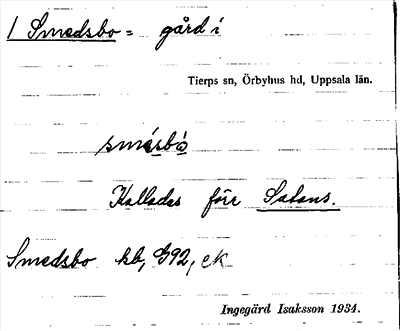 1 Smedsbo = gård i
Tierps sn, Örbyhus hd, Uppsala län.
smésbò
Kallades förr Satans.
Smedsbo hb, G92, ek
Ingegärd Isaksson 1934.